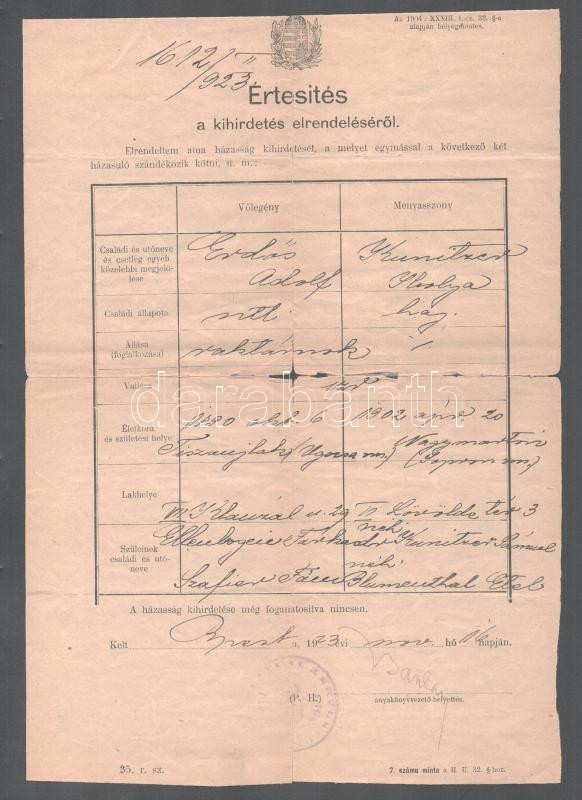 Az 1904 : XXXIII. t.-cz. 32. §-a
alapján bélyegmentes.
1612/II
923.
Értesités
a kihirdetés elrendeléséről.
Elrendeltem ama házasság kihirdetését, a melyet egymással a következő két
házasuló szándékozik kötni, u. m.:
Vőlegény Menyasszony
Családi és utóneve
és esetleg egyéb
közelebbi megjelö-
lése
Erdős
Adolf
Kunitzer
Ibolya
Családi állapota
ntl. haj.
Állása
(foglalkozása)
raktárnok ./.
Vallása
izr
Életkora
és születési helye
1890 okt. 6 1902 ápr 20
Tiszaujlak (Ugocsa vm.) Nagymarton
(Sopron vm.)
Lakhelye
VII Klauzál u. 29 Lövölde tér 3
Szüleinek
családi és utó-
neve
Farkas néh Kunitzer Sámuel
néh Blumenthal Etel
A házasság kihirdetése még foganatositva nincsen.
Kelt Bpest n, 1923 évi nov. hó 16 napján.
(P. H.)
anyakönyvvezető-helyettes.
35. r. sz.
7. számu minta a H. U. 32. §-hoz.
darabanth